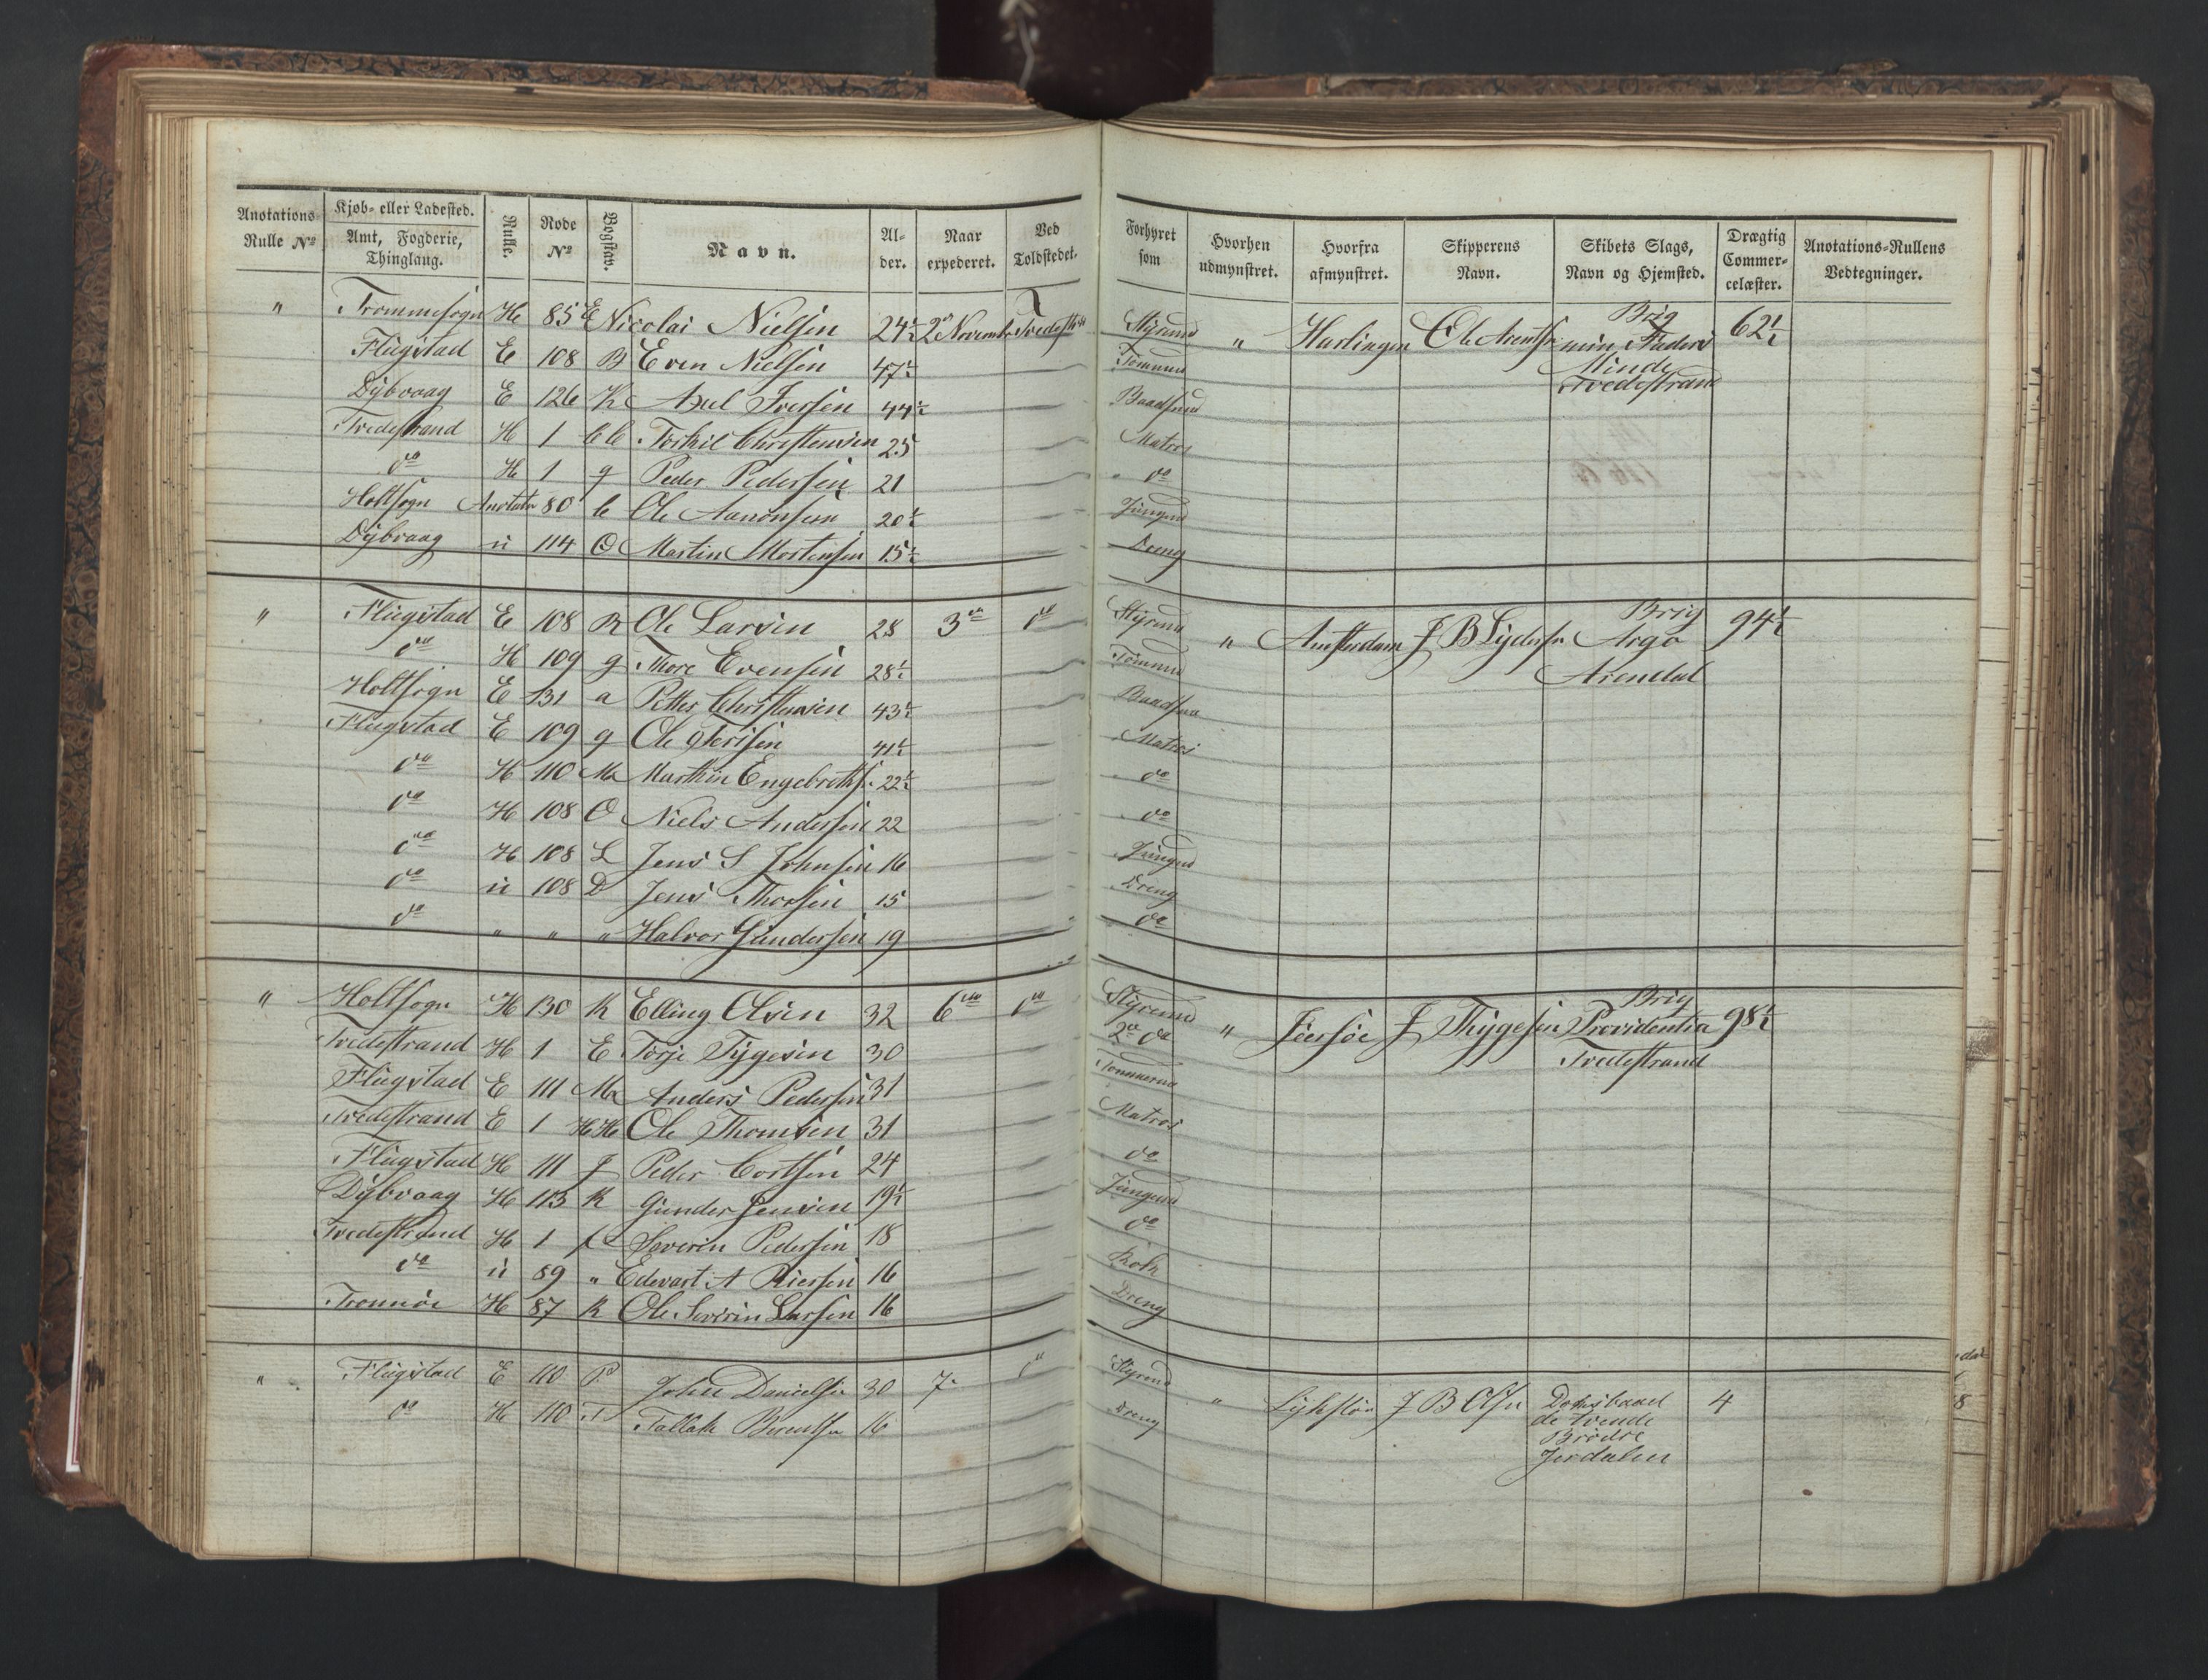 Anotations- Rulle No | Kjøb- eller Ladested. Amt, Fogderie, Thinglaug. | Rulle. | Rode No | Bogstav. | Navn. | Alder. | Naar expederet. | Ved Toldstedet. | Forhyret som | Hvorhen udmynstret. | Hvorfra afmynstret. | Skipperens Navn. | Skibets Slags, Navn og Hjemsted. | Drægtig Commercelæster. | Anotations-Rullens Vedtegninger.
" Trommesogn H 85 E Nicolai Nielsen 24½ 2 Novemb Tvedestr Styrmd " Harlingen Ole Arentsn Brig min Faders Minde Tvedestrand 62½
Flugstad E 108 B Even Nielsen 47½ Tømmd
Dybvaag E 126 K Axel Iversen 44½ Baadsmd
Tvedestrand H 1 CC Torkil Christensen 25 Matros
do H 1 g Peder Pedersen 21 do
Holtsogn Anotatn 80 C Ole Aanonsen 20½ Jungmd
Dybvaag ü 114 O Martin Mortensen 15½ Dreng
" Flugstad E 108 R Ole Larsen 28 3 do Styrmd " Amsterdam J B Lydersn Brig Argo Arendal 94½
do H 109 g Thore Evensen 28½ Tømmd
Holtsogn E 131 a Petter Christensen 43½ Baadsm
Flugstad E 109 g Ole 41½ Matros
do H 110 M Marthin Engebreths. 22½ do
do H 108 O Niels Andersen 22 do
do H 108 L Jens S Johnsen 16 Jungmd
do ü 108 D Jens Thorsen 15 Dreng
do " " " Halvor Gundersen 19 do
" Holtsogn H 130 K Elling Olsen 32 6 do Styrmd " J Thygesen Brig Providentia Tvedestrand 98½
Tvedestrand H 1 E Torje Tygesen 30 2 do
Flugstad E 111 M Anders Pedersen 31 Tømmermd
Tvedestrand E 1 HH Ole Thomsen 31 Matros
Flugstad H 111 J Peder Cortsen 24 do
Dybvaag H 113 K Gunder Jensen 19½ Jungmd
Tvedestrand H 1 Severin Pedersen 18 do
do ü 89 " Edevart A 16 Kok
Tromøe H 87 K Ole Severin Larsen 16 Dreng
" Flugstad E 110 P John Danielsn 30 7 do Styrmd " J B Olsn Dæksbaad de tvende Brødre 4
do H 110 T Tallak Berentsn 16 Dreng